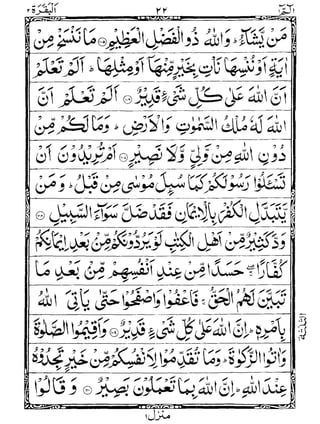 الٓمّٓ ۱
۲۲
اَلْبَقَرَة ۲
مَنْ يَّشَآءُ ؕ وَاللّٰهُ ذُو الْفَضْلِ الْعَظِيْمِ ۝ مَا نَنْسَخْ مِنْ
اٰيَةٍ اَوْ نُنْسِهَا نَاْتِ بِخَيْرٍ مِّنْهَاۤ اَوْ مِثْلِهَا ؕ اَلَمْ تَعْلَمْ
اَنَّ اللّٰهَ عَلٰى كُلِّ شَىْءٍ قَدِيْرٌ ۝ اَلَمْ تَعْلَمْ اَنَّ
اللّٰهَ لَهٗ مُلْكُ السَّمٰوٰتِ وَالْاَرْضِ ؕ وَمَا لَكُمْ مِّنْ
دُوْنِ اللّٰهِ مِنْ وَّلِيٍّ وَّلَا نَصِيْرٍ ۝ اَمْ تُرِيْدُوْنَ اَنْ
تَسْـَٔلُوْا رَسُوْلَكُمْ كَمَا سُىِٕلَ مُوْسٰى مِنْ قَبْلُ ؕ وَمَنْ
يَّتَبَدَّلِ الْكُفْرَ بِالْاِيْمَانِ فَقَدْ ضَلَّ سَوَآءَ السَّبِيْلِ ۝
وَدَّ كَثِيْرٌ مِّنْ اَهْلِ الْكِتٰبِ لَوْ يَرُدُّوْنَكُمْ مِّنْۢ بَعْدِ اِيْمَانِكُمْ
كُفَّارًا ۖۚ حَسَدًا مِّنْ عِنْدِ اَنْفُسِهِمْ مِّنْۢ بَعْدِ مَا
تَبَيَّنَ لَهُمُ الْحَقُّ ۚ فَاعْفُوْا وَاصْفَحُوْا حَتّٰى يَاْتِىَ اللّٰهُ
بِاَمْرِهٖ ؕ اِنَّ اللّٰهَ عَلٰى كُلِّ شَىْءٍ قَدِيْرٌ ۝ وَاَقِيْمُوا الصَّلٰوةَ
وَاٰتُوا الزَّكٰوةَ ؕ وَمَا تُقَدِّمُوْا لِاَنْفُسِكُمْ مِّنْ خَيْرٍ تَجِدُوْهُ
عِنْدَ اللّٰهِ ؕ اِنَّ اللّٰهَ بِمَا تَعْمَلُوْنَ بَصِيْرٌ ۝ وَقَالُوْا
الثلثة
منزل ۱